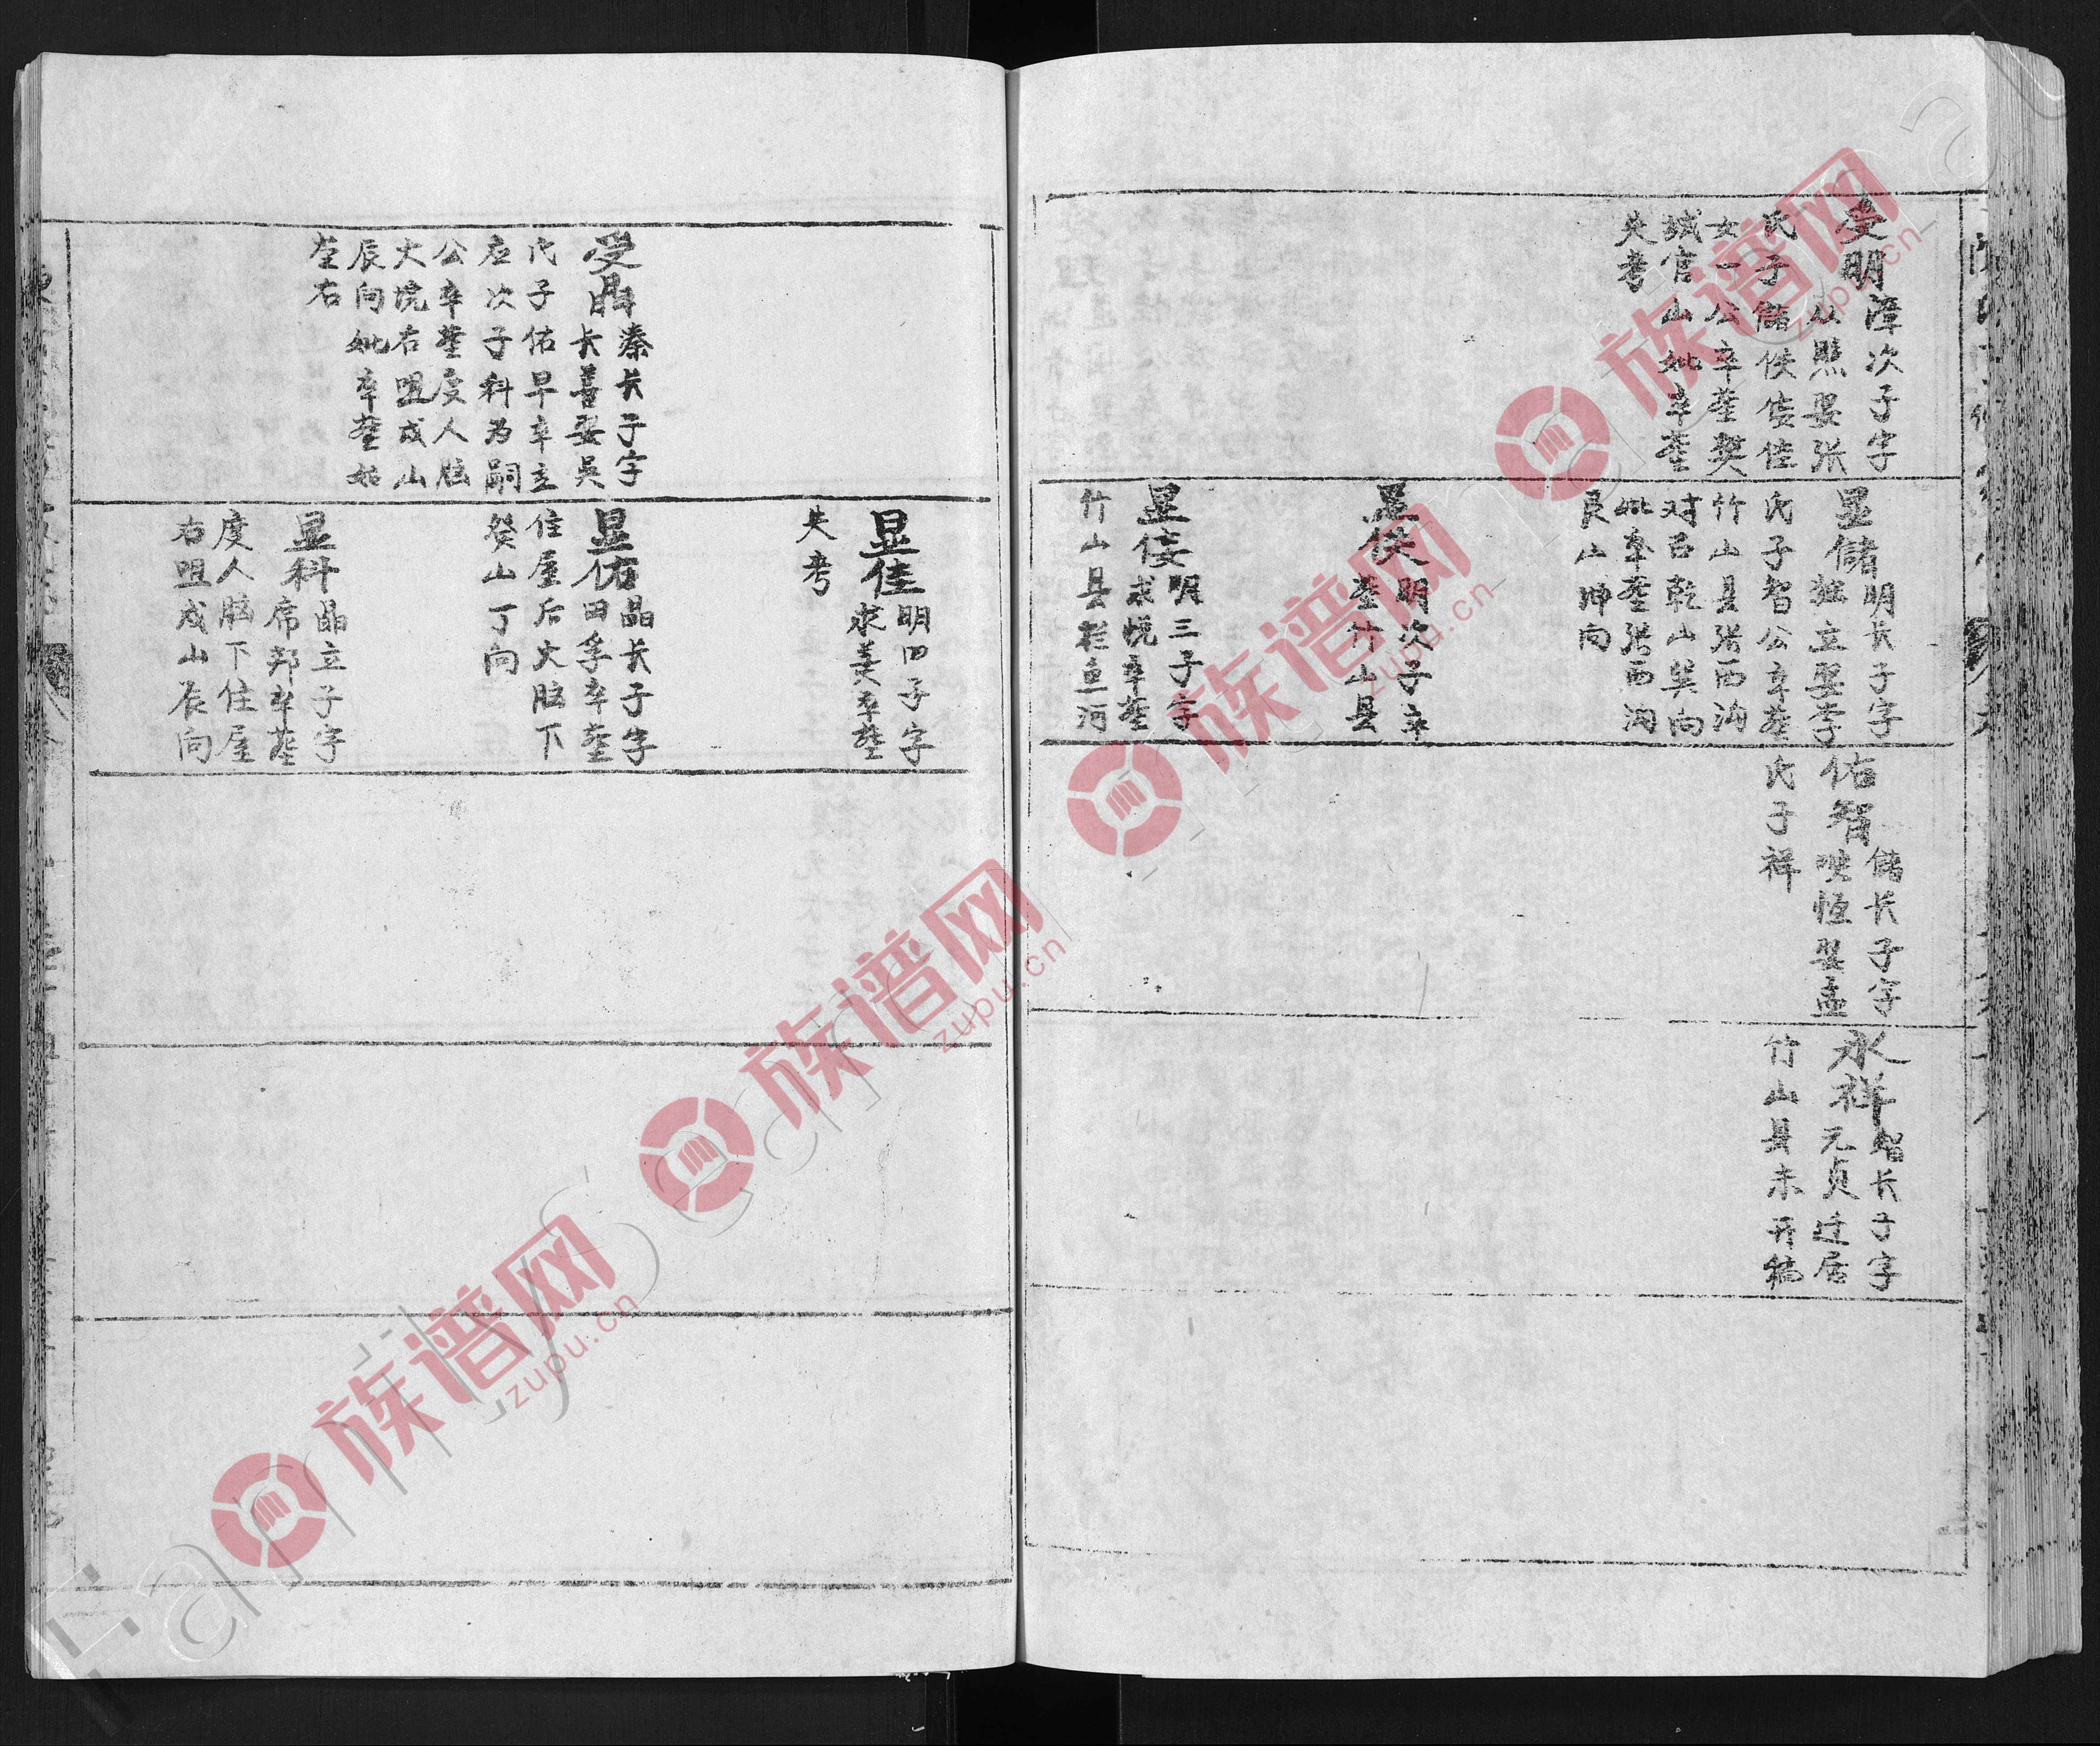 受明
泽次子字
从照娶张
氏子儲佚倿佳
女一公卒塟樊
城官山妣卒塟
失考
显儲
明长子字
独立娶李
氏子智公卒塟
竹山县张西沟
对己乾山巽向
妣卒塟张西沟
艮山坤向
显佚
明次子卒
塟竹山县
显倿
明三子字
求悦卒塟
竹山县拦鱼河
佑智
儲长子字
恒娶孟
氏子祥
永祥
智长子字
元贞迁居
竹山县未开
受晶
泰长子字
长善娶吴
氏子佑早卒立
应次子科为嗣
公卒塟度人脑
大垸右咀戍山
辰向妣卒塟姑
塟右
显佳
明四子字
求美卒塟
失考
显佑
晶长子字
田孚卒塟
住屋后大脑下
癸山丁向
显科
晶立子字
席邦卒塟
度人脑下住屋
右咀戍山辰向
族谱网
zupu.cn
族谱网
zupu.cn
族谱网
zupu.cn
族谱网
zupu.cn